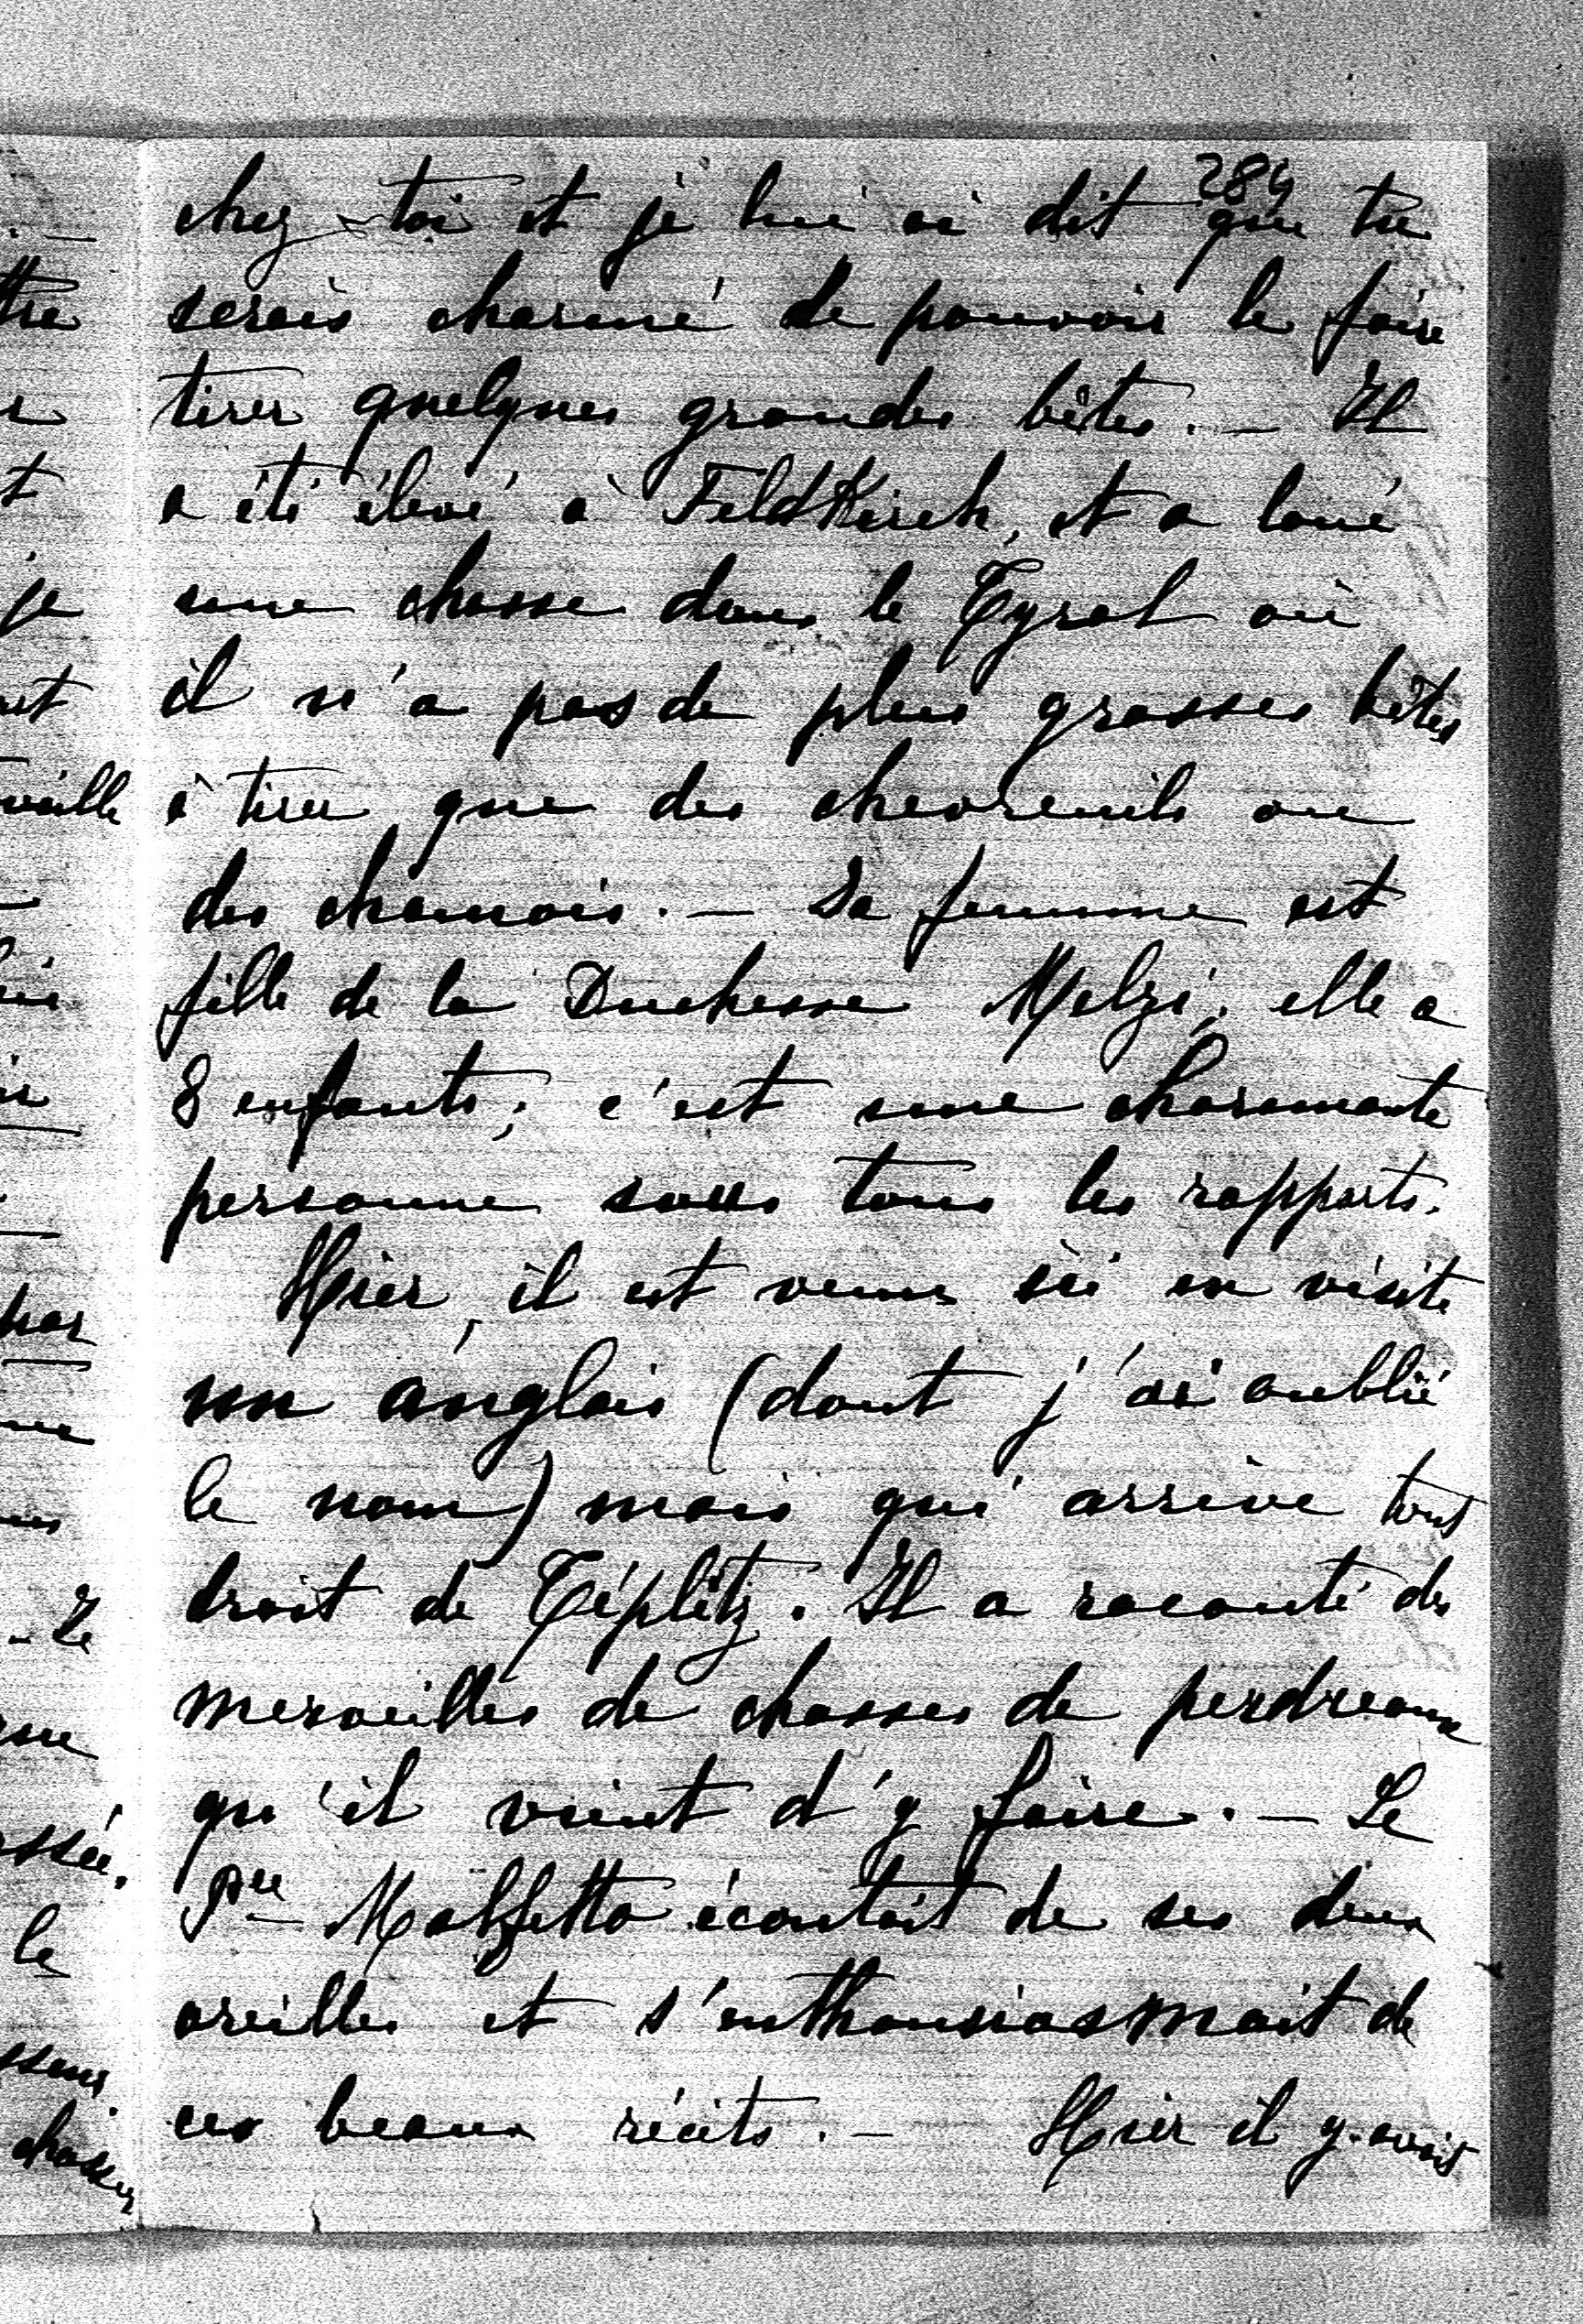 284
chez toi et je lui ai dit que tu
serais charmé de pouvoir le faire
tirer quelques grandes bêtes. — Il
a été élevé à FeldKirch, et a loué
une chasse dans le Tyrol où
il n'a pas de plus grosses bêtes
à tirer que des chevreuils ou
des chamois. — Sa femme est
fille de la Duchesse Melzi; elle a
8 enfants; c'est une charmante
personne sous tous les rapports.
Hier, il est venu ici en visite
un anglais (dont j'ai oublié
le nom) mais qui arrive tout
droit de Téplitz. Il a raconté des
merveilles de chasses de perdreaux
qu'il vient d'y faire. — Le
Pce Molfetta écoutait de ses deux
oreilles et s'enthousiasmait de
ces beaux récits. — Hier il y avait